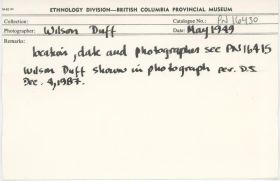 ETHNOLOGY DIVISION—BRITISH COLUMBIA PROVINCIAL MUSEUM
Collection: Catalogue No.: PN 16430
Photographer: Wilson Duff Date: May 1949
Remarks:
location, date and photographer see PN 16415
Wilson Duff shown in photograph per. D.S.
Dec. 4, 1987.